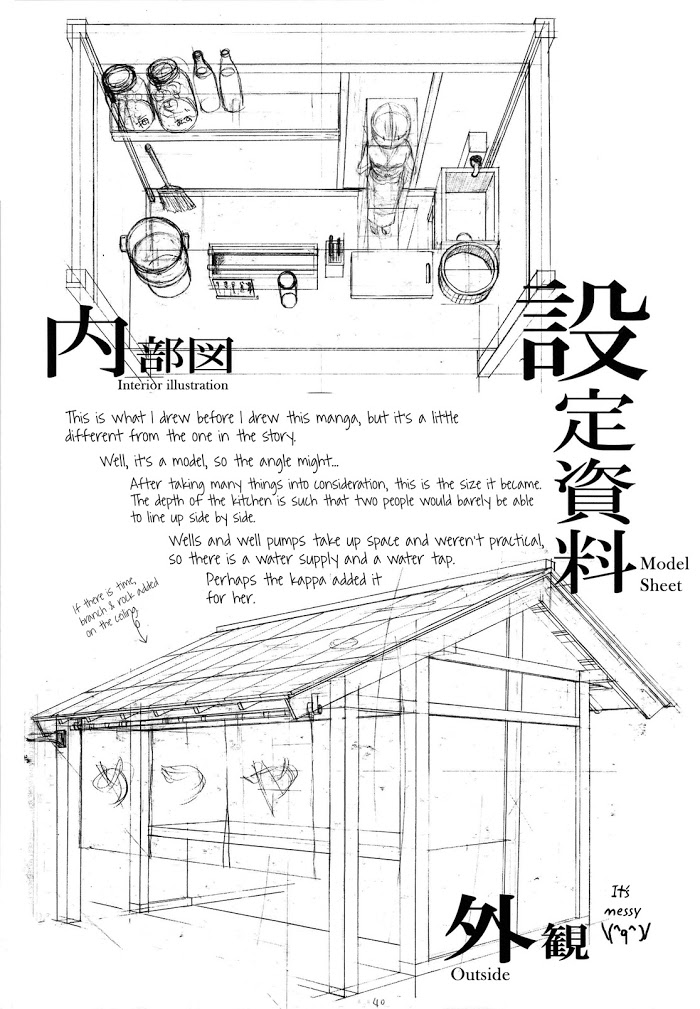 内部図
Interior illustration
設定資料
Model
Sheet
This is what I drew before I drew this manga, but it's a little
different from the one in the story.
Well, it's a model, so the angle might...
After taking many things into consideration, this is the size it became.
The depth of the kitchen is such that two people would barely be able
to line up side by side.
Wells and well pumps take up space and weren't practical,
so there is a water supply and a water tap.
Perhaps the kappa added it
for her.
If there is time,
branch & rock added
on the ceiling
外観
Outside
It's
messy
\(^q^)/
40